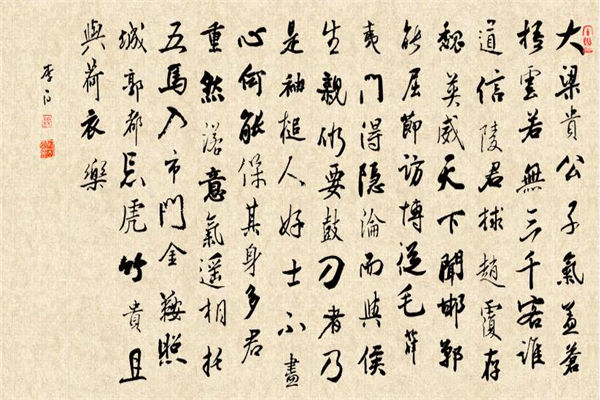 大梁貴公子氣蓋蒼
梧雲若無三千客誰
道信陵君捄趙覆存
魏英威天下聞邯鄲
能屈節訪博從毛薛
夷門得隱淪而與侯
生親仍要鼓刀者乃
是袖槌人好士不盡
心何能保其身多君
重然諾意氣遥相托
五馬入市門金鞍照
城郭都忘虎竹貴且
與荷衣樂
李白